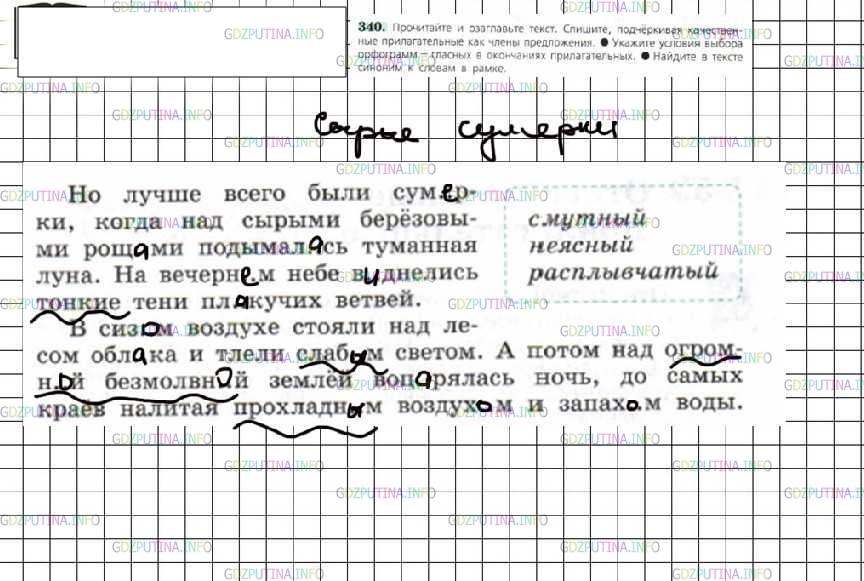 340. Прочитайте и озаглавьте текст. Спишите, подчёркивая качествен-
ные прилагательные как члены предложения. ● Укажите условия выбора
орфограмм – гласных в окончаниях прилагательных. ● Найдите в тексте
синоним к словам в рамке.
Сырые сумерки
Но лучше всего были сумер-
ки, когда над сырыми берёзовы-
ми рощами подымалась туманная
луна. На вечернем небе виднелись
тонкие тени плакучих ветвей.
В сизом воздухе стояли над ле-
сом облака и тлели слабым светом. А потом над огром-
ной безмолвной землёй воцарялась ночь, до самых
краёв налитая прохладным воздухом и запахом воды.
смутный
неясный
расплывчатый
GDZPUTINA.INFO